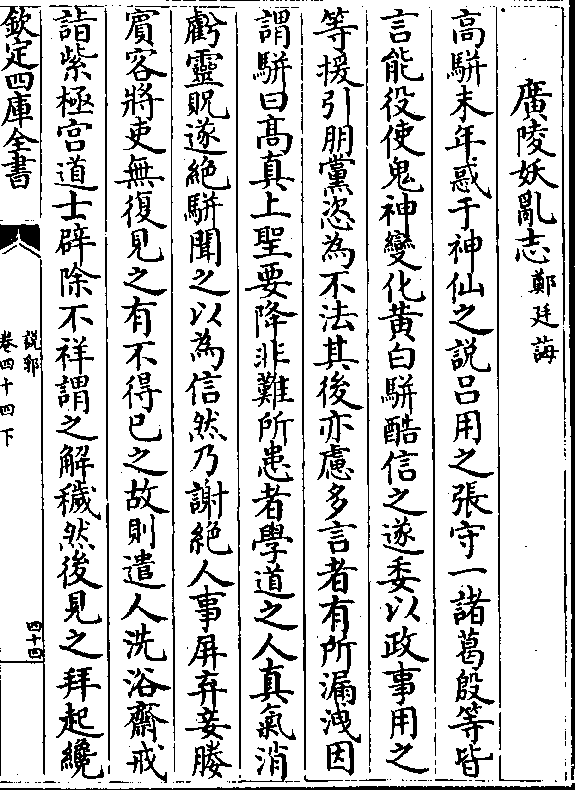 廣陵妖亂志鄭廷誨
高駢末年惑于神仙之說呂用之張守一諸葛殷等皆
言能役使鬼神變化黃白駢酷信之遂委以政事用之
等援引朋黨恣為不法其後亦慮多言者有所漏洩因
謂駢曰高真上聖要降非難所患者學道之人真氣消
虧靈貺遂絕駢聞之以為信然乃謝絕人事屏棄妾媵
賓客將吏無復見之有不得已之故則遣人洗浴齋戒
詣紫極宫道士辟除不祥謂之解穢然後見之拜起纔
欽定四庫全書
說郛
卷四十四下
四十四